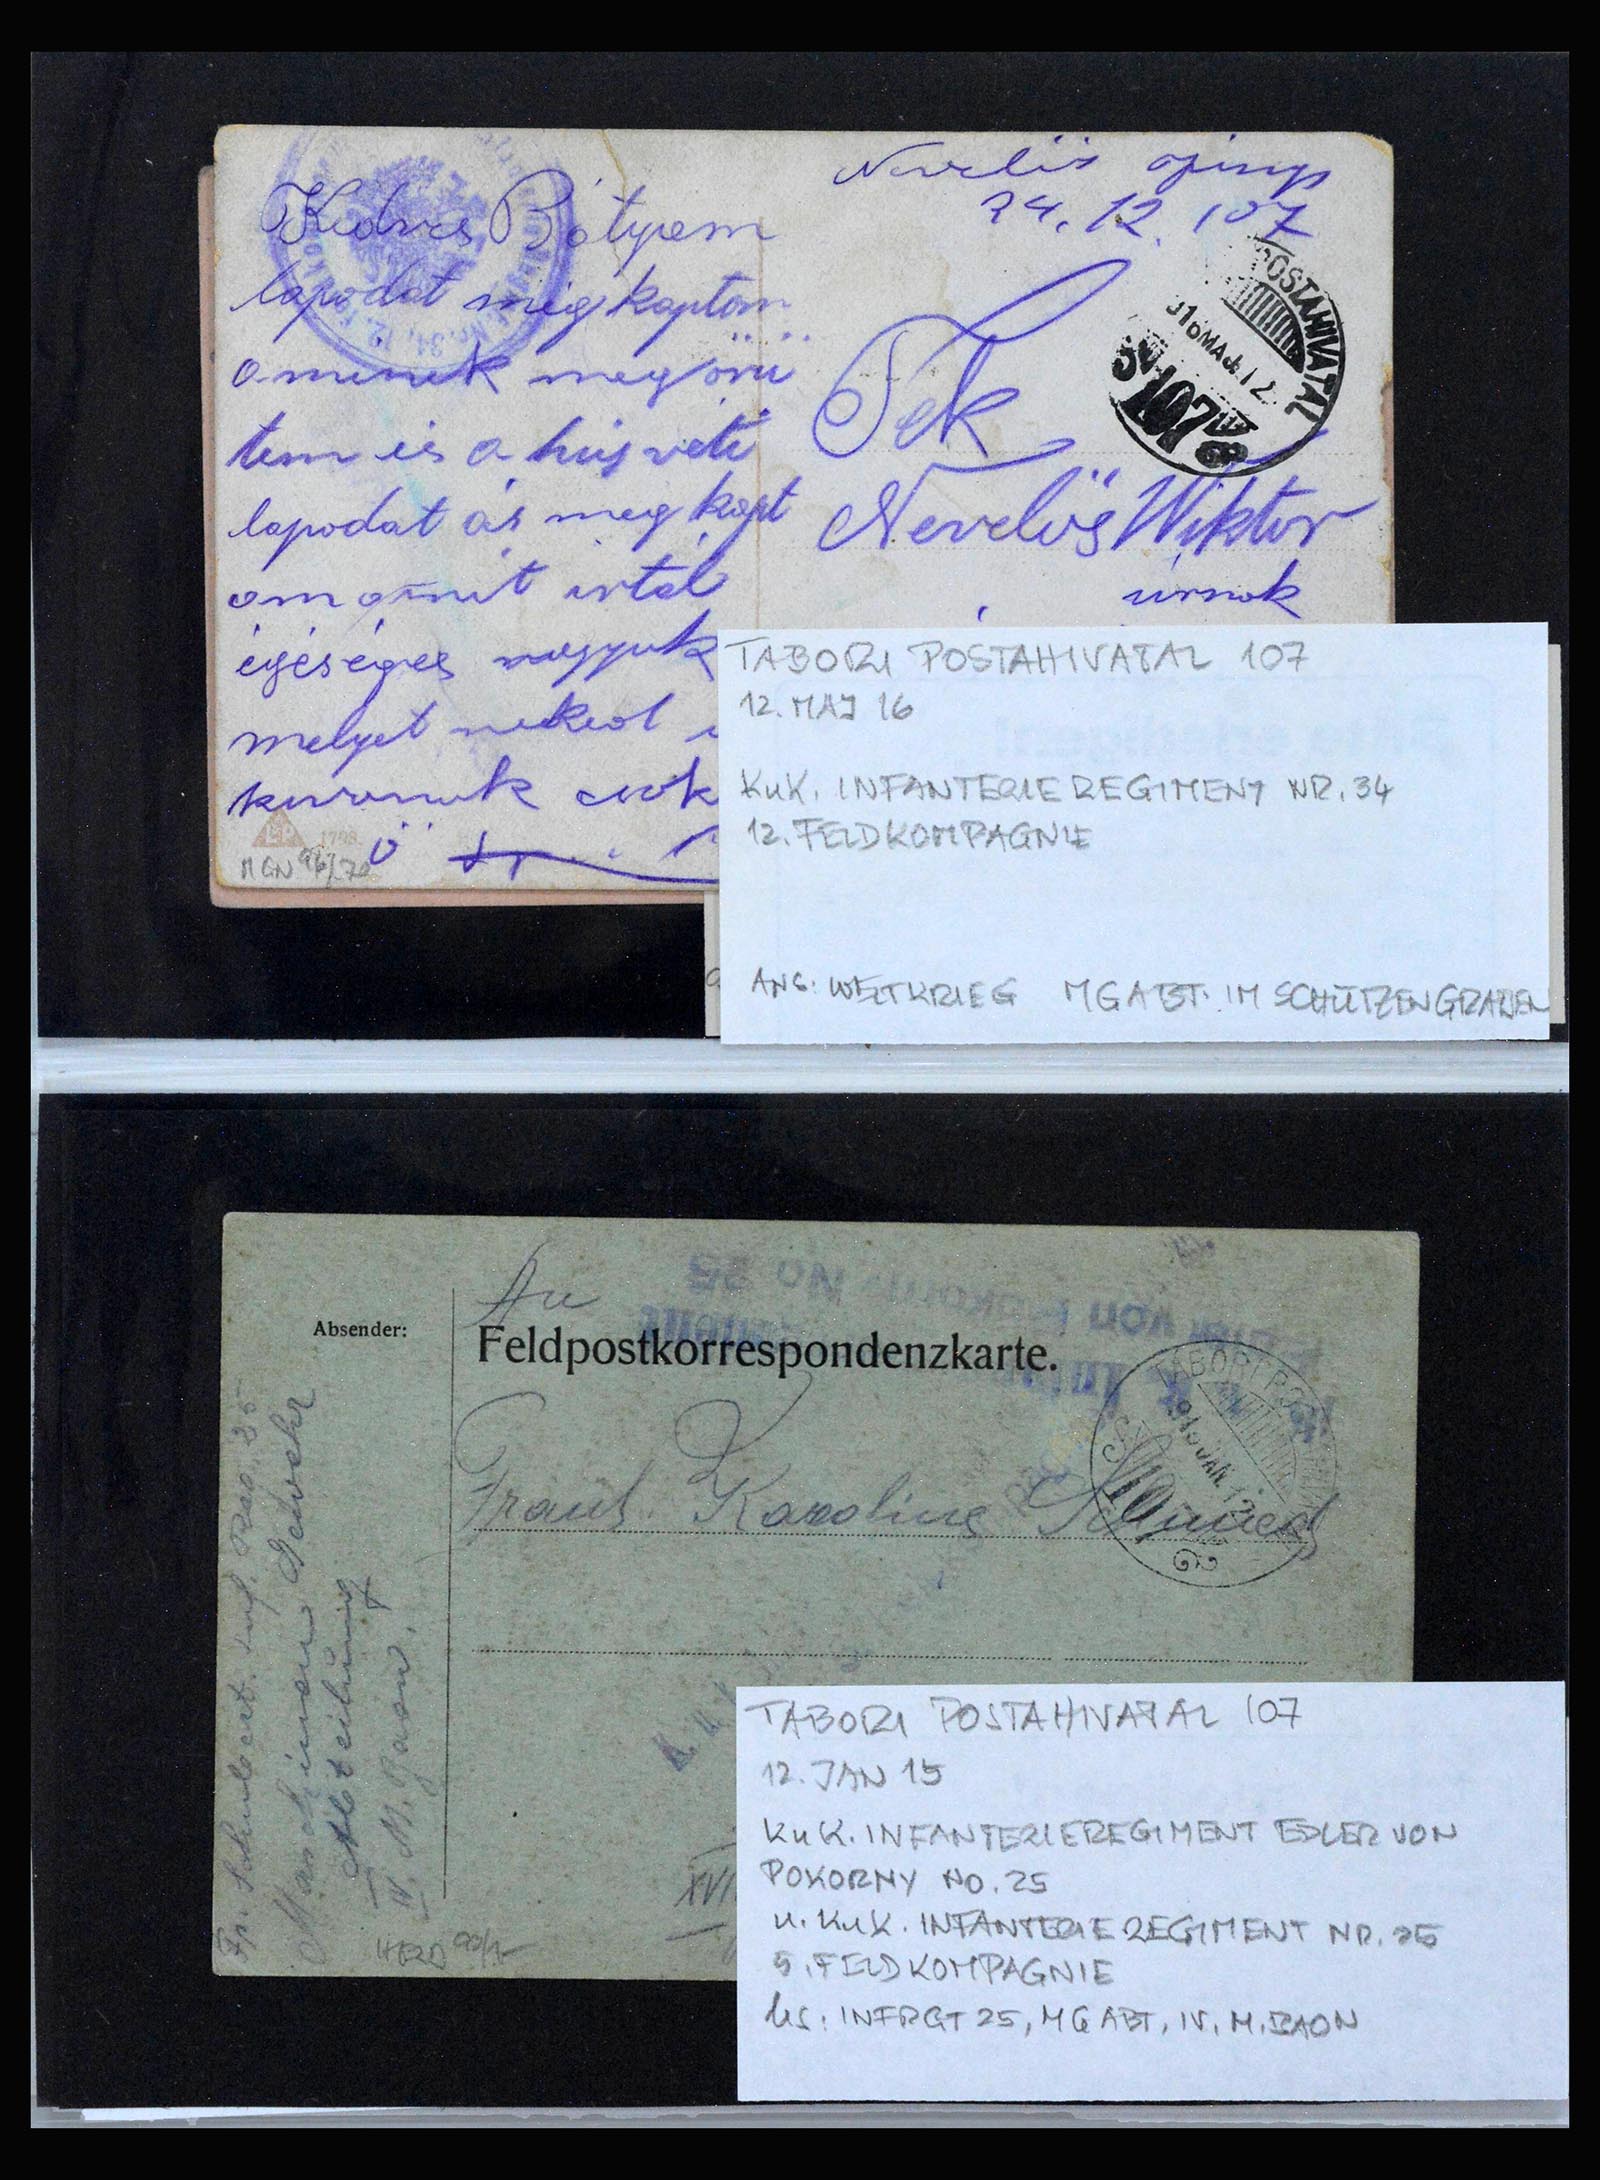 Nevelős
34, 12, 107
Kedves Bátyem
lapodat meg kaptam
aminek meg örü
tem és a husveti
lapodat ás meg kapt
am amit irtál
egéséges vagyuk
melyet neked
kivanunk csok
Nr. 34, 12. Fe
POSTAHIVATAL
916 MÁJ. 12
107
Tek
Nevelös Wiktor
úrnak
1798
MGN 96/-70
TABORI POSTAHIVATAL 107
12. MAJ 16
KuK. INFANTERIEREGIMENT NR. 34
12. FELDKOMPAGNIE
ANS: WELTKRIEG MGABT. IM SCHÜTZENGRABEN
von Pokorny No 25
An
Absender:
Feldpostkorrespondenzkarte.
TÁBORI POS
915 JAN. 12
107
a
Fräul. Karoline
Inf. Reg. 25
Maschinen Gewehr
Abteilung
IV. M. Baon.
XVI
HERD 90/-
TABORI POSTAHIVATAL 107
12. JAN 15
KuK. INFANTERIEREGIMENT EDLER VON
POKORNY NO. 25
u. KuK. INFANTERIEREGIMENT NR. 25
5. FELDKOMPAGNIE
hs: INFRGT 25, MG ABT, IV. M. BAON